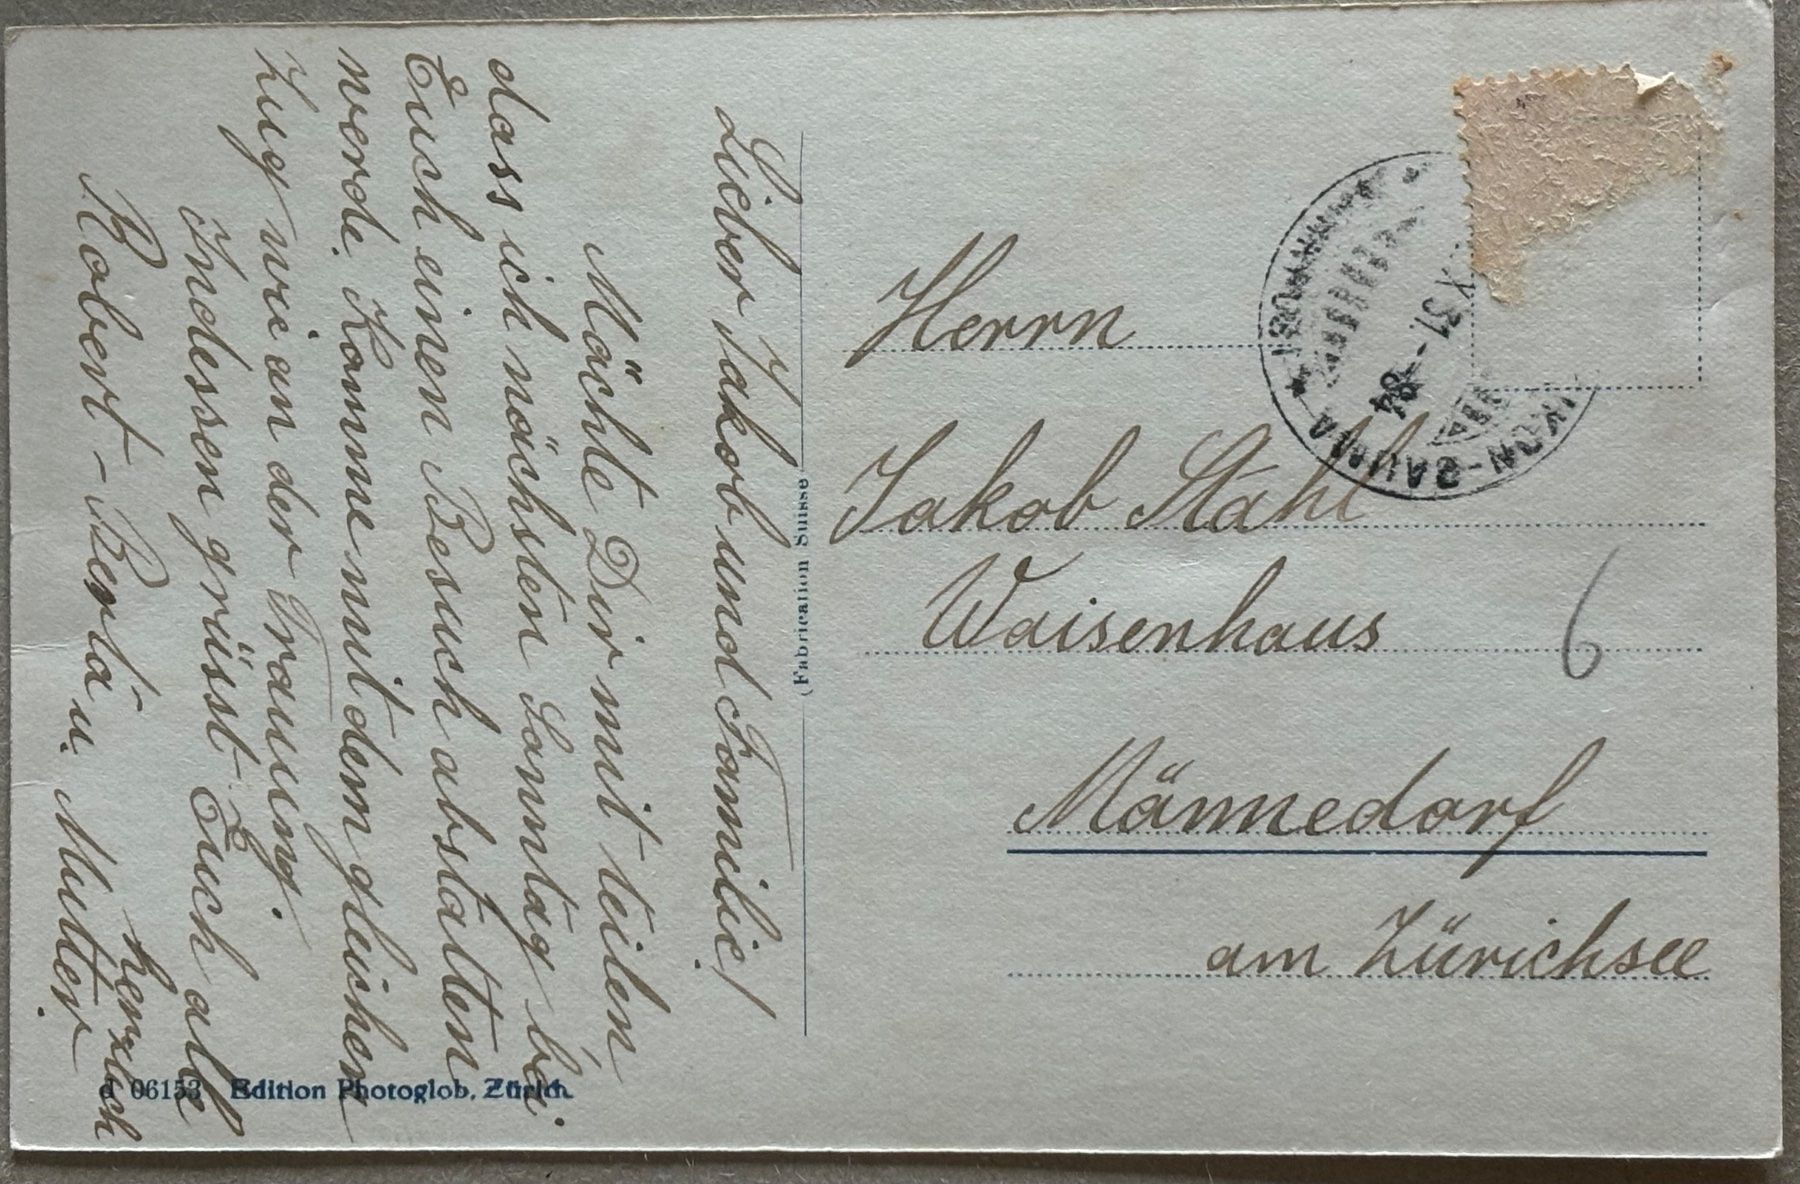 Lieber Jakob und Familie!
Möchte Dir mit teilen
dass ich nächsten Sonntag bei
Euch einen Besuch abstatten
werde. Komme mit dem gleichen
Zug wie an der Trauung.
Indessen grüsst Euch alle
herzlich
Robert - Berta u. Mutter.
(Fabrication Suisse)
d 06153 Edition Photoglob, Zürich.
Herrn
Jakob Stahl
Waisenhaus
Männedorf
am Zürichsee
6
X 31.-8
BAUMA